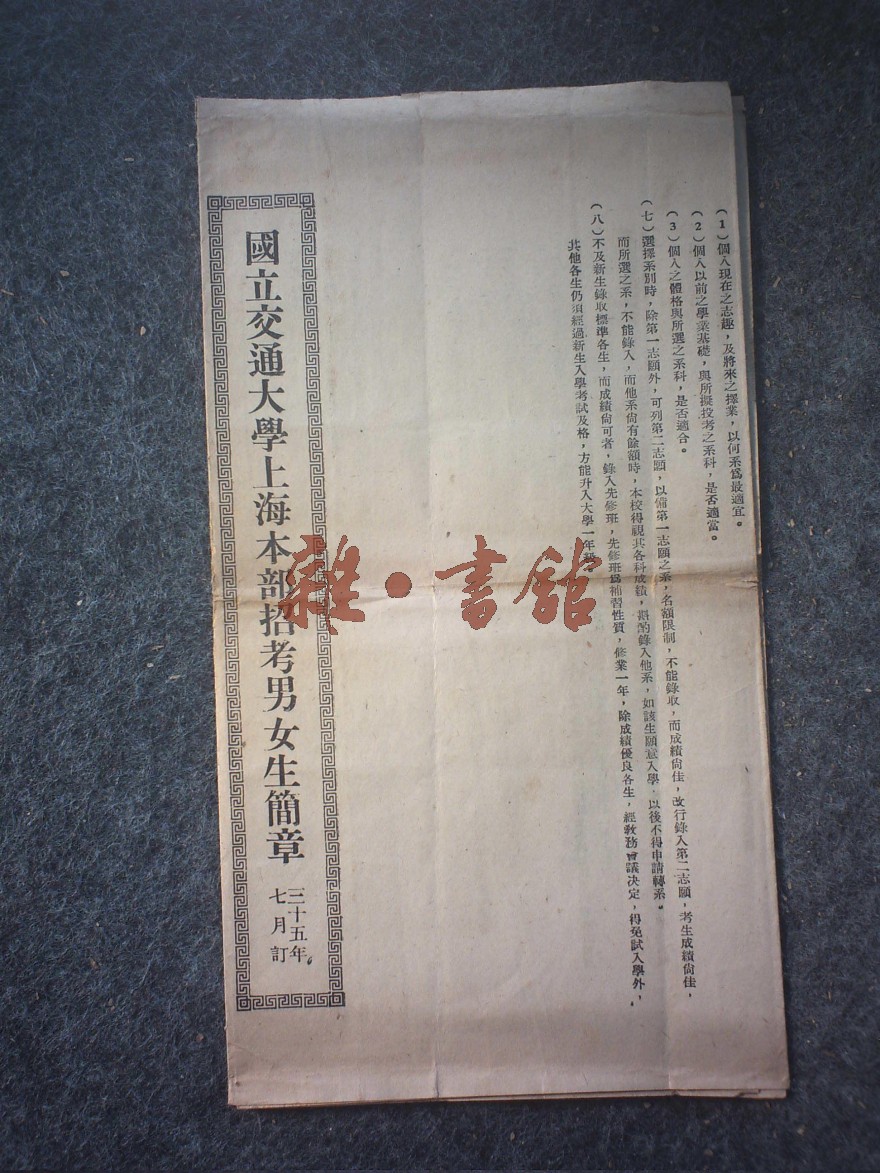 （1）個人現在之志趣，及將來之擇業，以何系爲最適宜。
（2）個人以前之學業基礎，與所擬投考之系科，是否適當。
（3）個人之體格與所選之系科，是否適合。
（七）選擇系別時，除第一志願外，可列第二志願，以備第一志願之系，名額限制，不能錄取，而成績尙佳，改行錄入第二志願，考生成績尙佳，
而所選之系，不能錄入，而他系尙有餘額時，本校得視其各科成績，斟酌錄入他系，如該生願意入學，以後不得申請轉系。
（八）不及新生錄取標準各生，而成績尙可者，錄入先修班，先修班爲補習性質，修業一年，除成績優良各生，經敎務會議决定，得免試入學外，
其他各生仍須經過新生入學考試及格，方能升入大學一年級。
國立交通大學上海本部招考男女生簡章
三十五年
七月訂
雜·書館